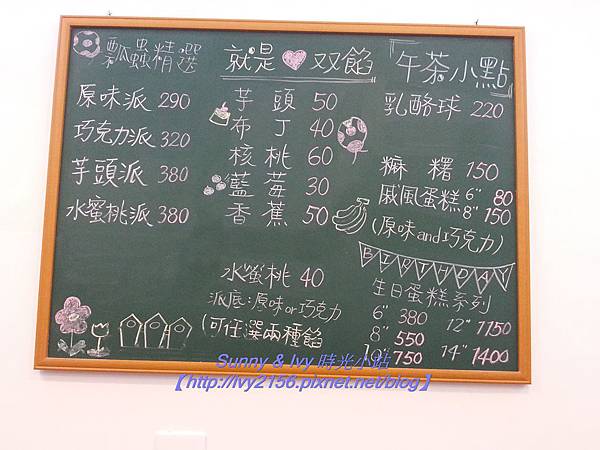 瓢蟲精選
原味派 290
巧克力派 320
芋頭派 380
水蜜桃派 380
就是♥双餡
芋頭 50
布丁 40
核桃 60
藍莓 30
香蕉 50
水蜜桃 40
派底:原味or巧克力
(可任選兩種餡
「午茶小點」
乳酪球 220
麻糬 150
戚風蛋糕 6" 80
8" 150
(原味and巧克力)
BIRTHDAY
生日蛋糕系列
6" 380 12" 1150
8" 550
10" 750 14" 1400
Sunny & Ivy 時光小站
【http://ivy2156.pixnet.net/blog】